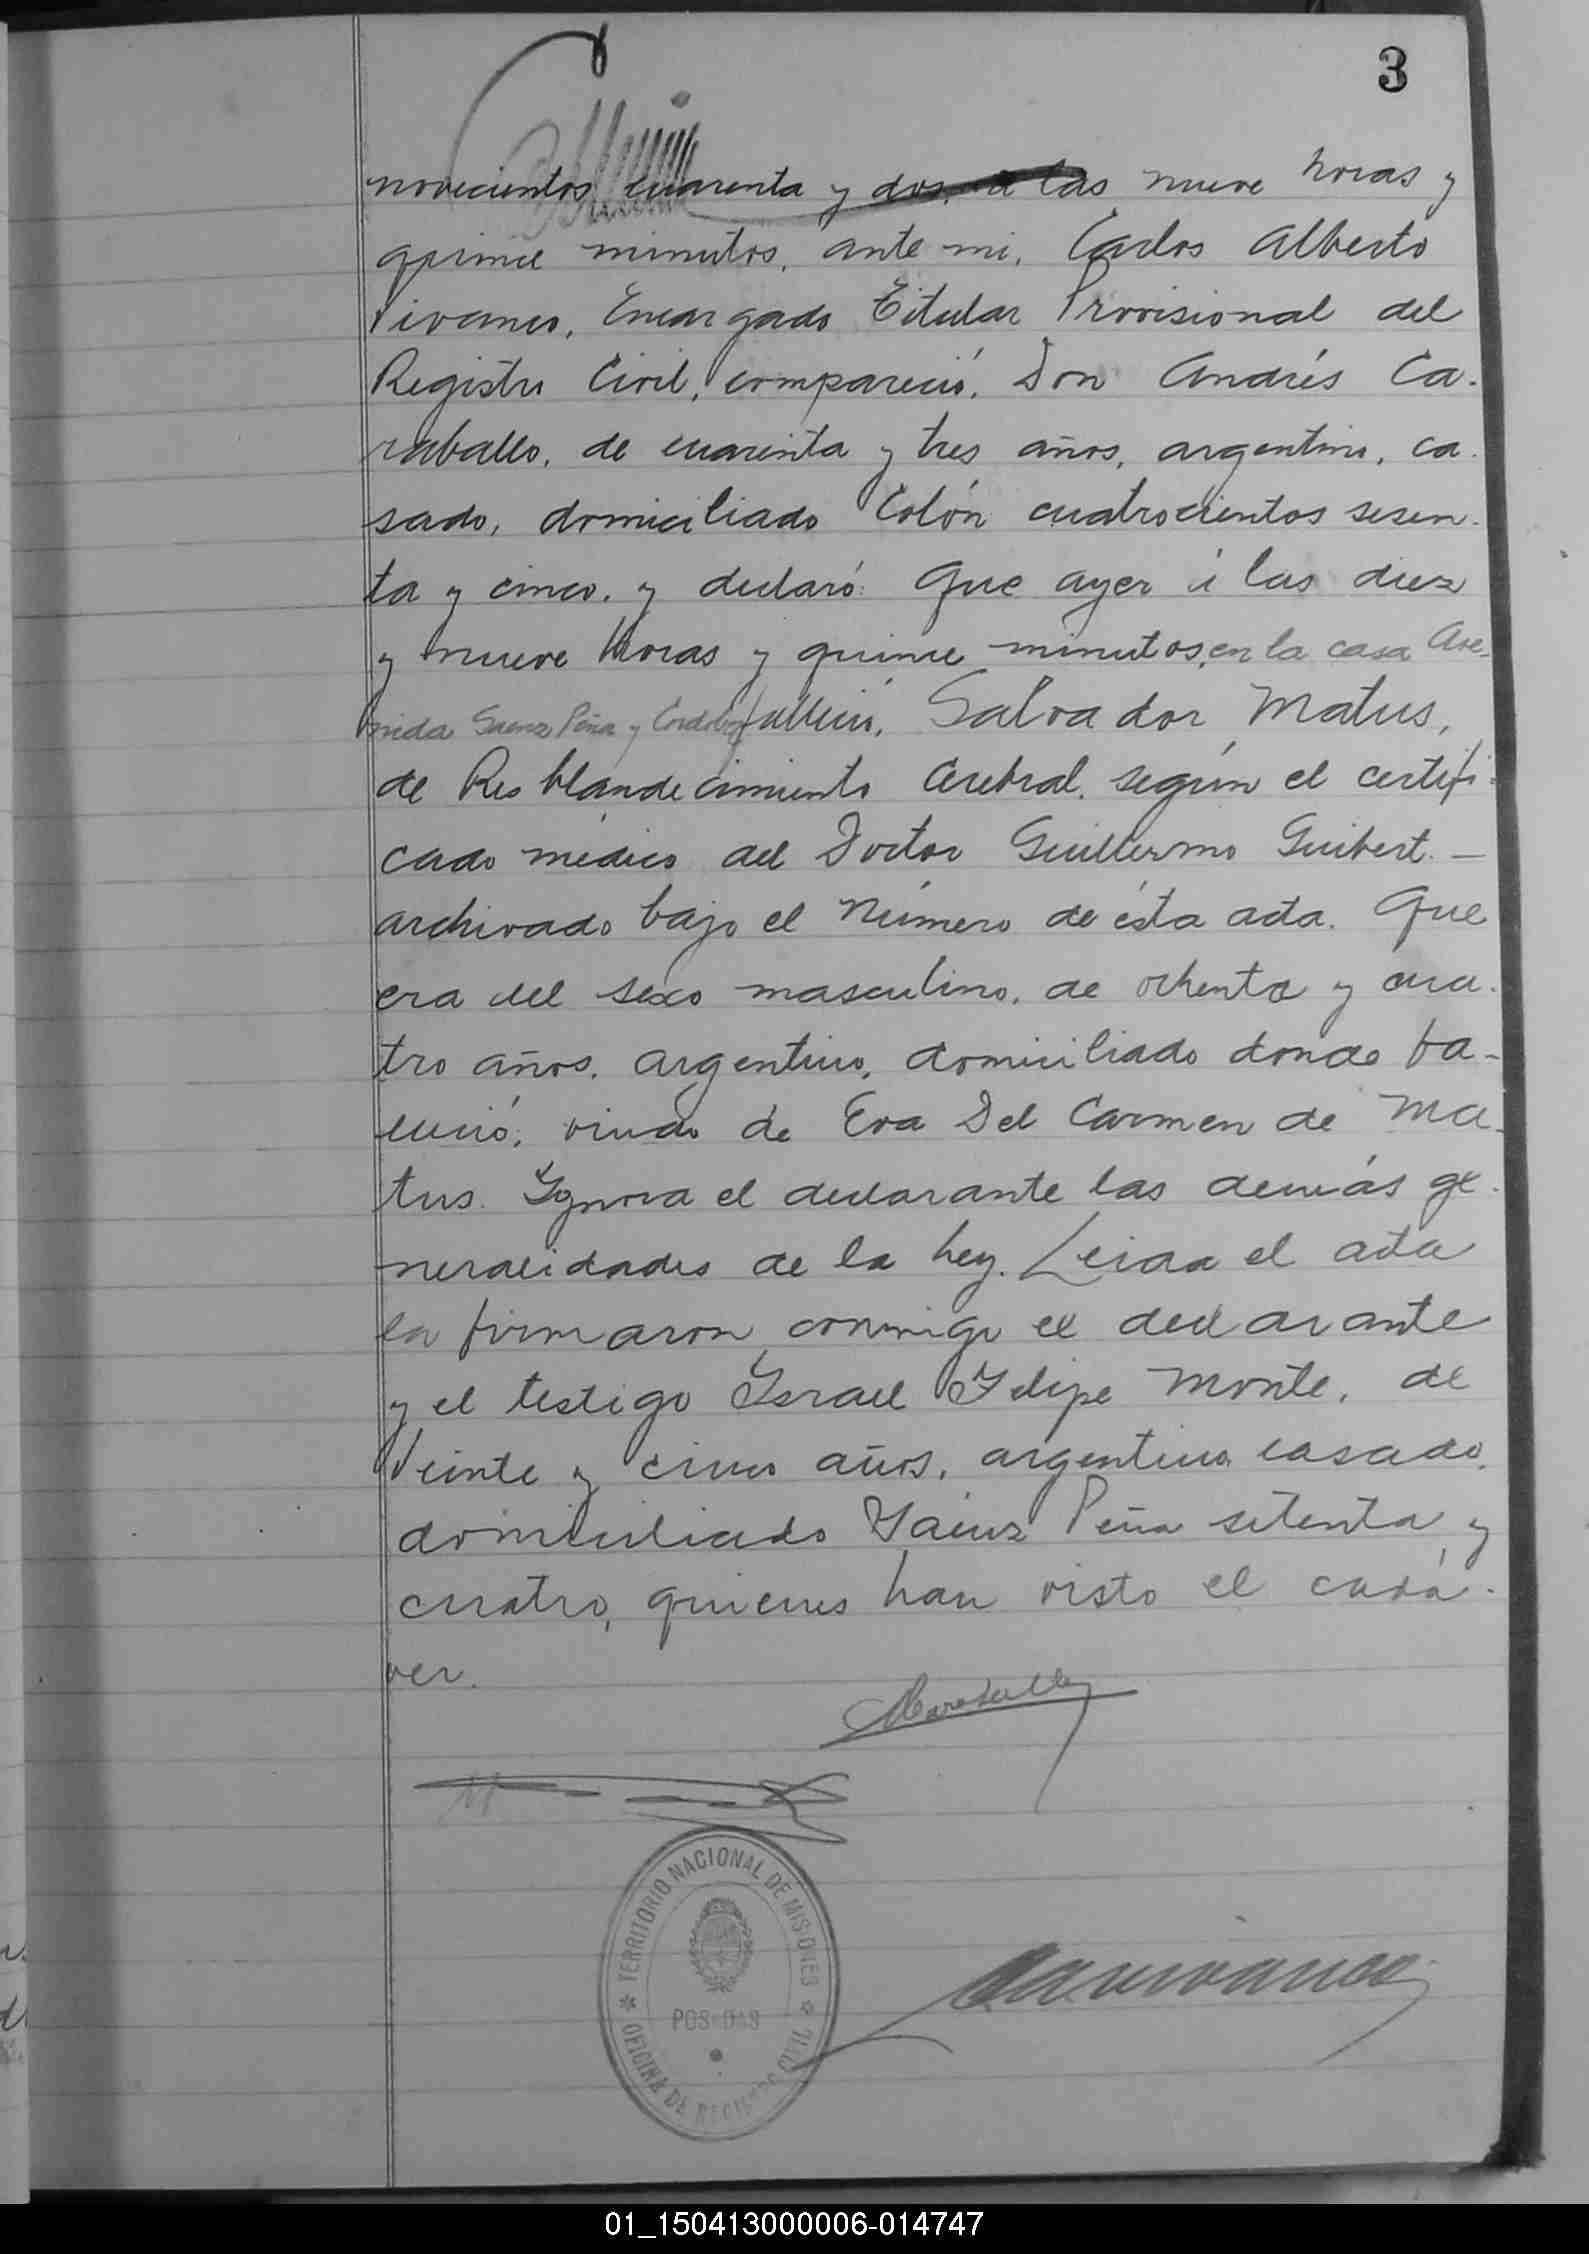 3
novecientos cuarenta y dos, a las nueve horas y
quince minutos, ante mi, Carlos Alberto
Vivanco, Encargado Titular Provisional del
Registro Civil, compareció, Don Andrés Ca-
raballo, de cuarenta y tres años, argentino, ca-
sado, domiciliado Colón cuatrocientos sesen-
ta y cinco, y declaró: Que ayer á las diez
y nueve horas y quince minutos, en la casa Ave-
nida Saenz Peña y Córdoba falleció, Salvador Matus,
de Resblandecimiento Cerebral, según el certifi-
cado médico del Doctor Guillermo Guibert. —
archivado bajo el Número de ésta acta. Que
era del sexo masculino, de ochenta y cua-
tro años, argentino, domiciliado donde fa-
lleció, viudo de Eva Del Carmen de Ma-
tus. Ygnora el declarante las demás ge-
neralidades de la ley. Leida el acta
la firmaron conmigo el declarante
y el testigo Israel Felipe Monte, de
Veinte y cinco años, argentino casado,
domiciliado Sáenz Peña setenta y
cuatro, quienes han visto el cadá-
ver.
TERRITORIO NACIONAL DE MISIONES
POSADAS
OFICINA DE REGISTRO CIVIL
01_150413000006-014747